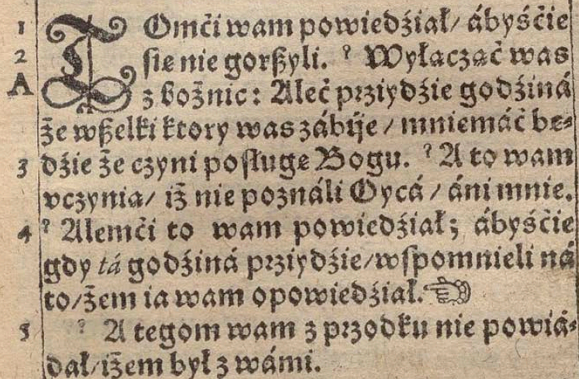 1 TOmći wam powiedźiał/ ábyśćie
2 sie nie gorßyli. ² Wyłaczać was
A z bożnic: Aleć przyidźie godźiná
że wßelki ktory was zábije / mniemáć be-
3 dźie że czyni posługe Bogu. ³ A to wam
vczynia/ iż nie poználi Oycá / áni mnie.
4 Alemći to wam powiedźiał; ábyśćie
gdy tá godźiná przyidźie/ wspomnieli ná
to/ żem ia wam opowiedźiał. ☜
5 A tegom wam z przodku nie powiá-
dał/ iżem był z wámi.